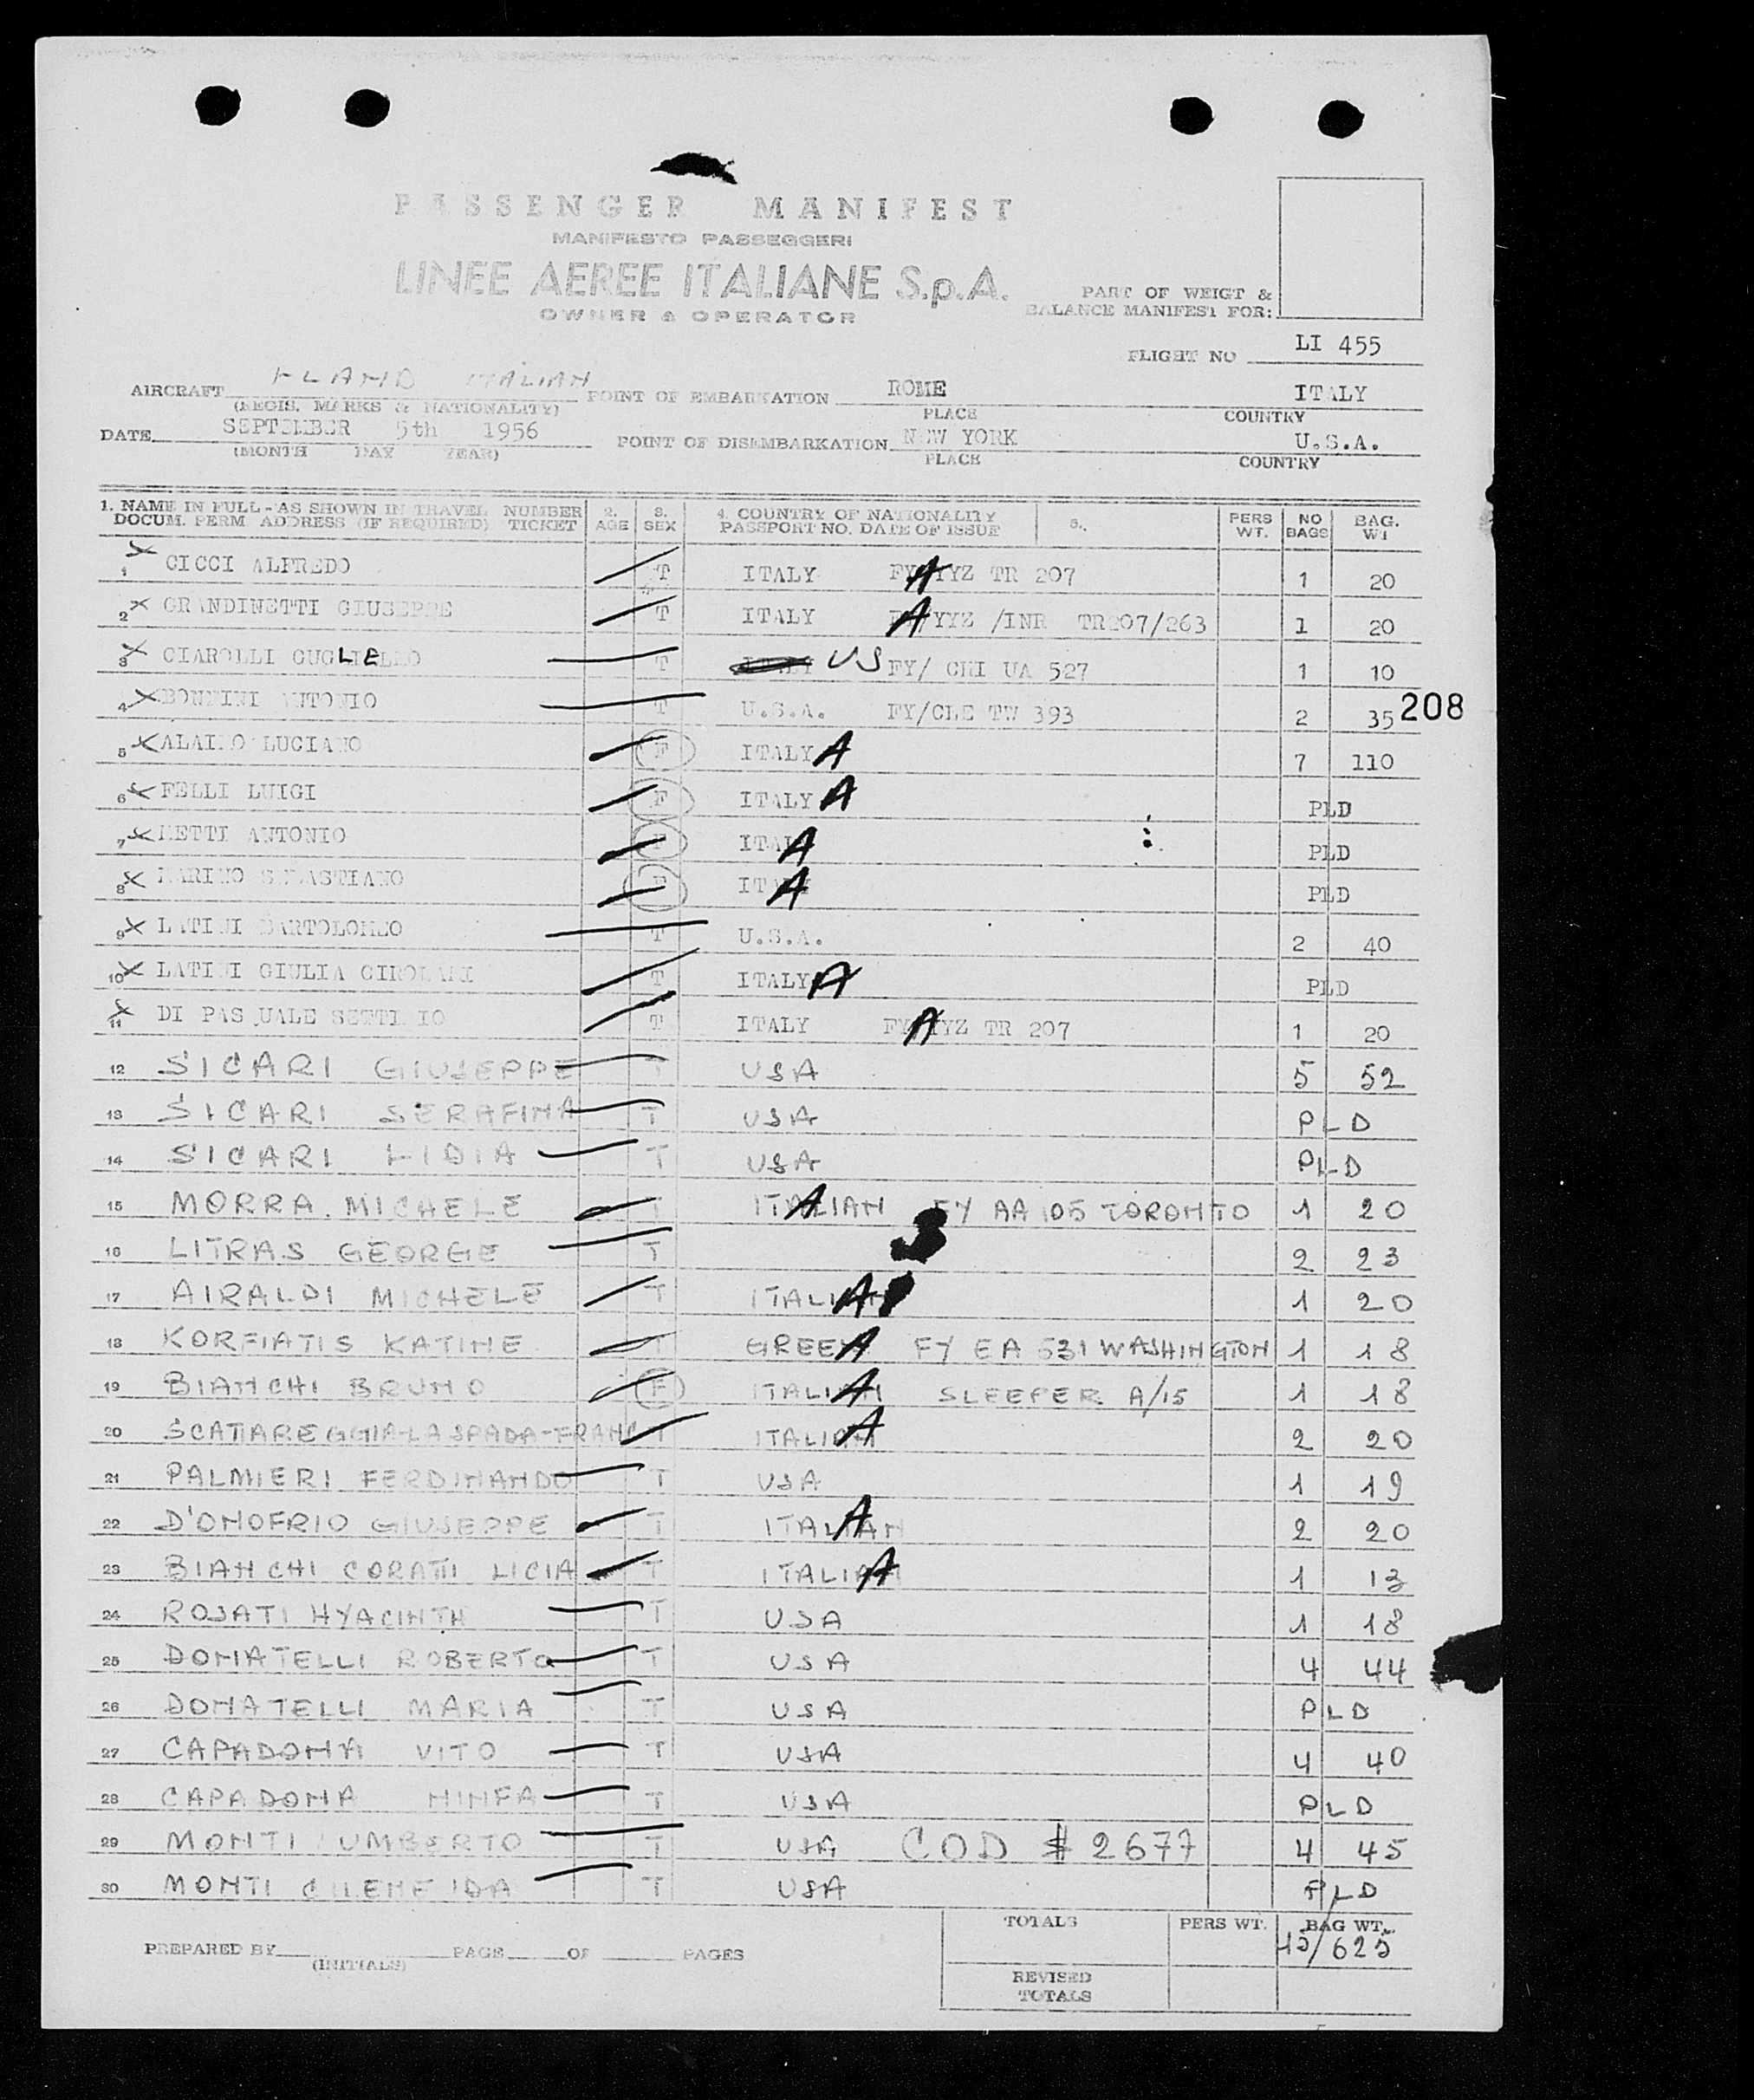 PASSENGER MANIFEST
MANIFESTO PASSEGGERI
LINEE AEREE ITALIANE S.p.A.
OWNER & OPERATOR
PART OF WEIGT &
BALANCE MANIFEST FOR:
FLIGHT NO LI 455
AIRCRAFT ITALIAN POINT OF EMBARKATION ROME ITALY
(REGIS. MARKS & NATIONALITY) PLACE COUNTRY
DATE SEPTEMBER 5th 1956 POINT OF DISEMBARKATION NEW YORK U.S.A.
(MONTH DAY YEAR) PLACE COUNTRY
1. NAME IN FULL - AS SHOWN IN TRAVEL NUMBER 2. 3. 4. COUNTRY OF NATIONALITY 5. PERS NO BAG.
DOCUM. PERM ADDRESS (IF REQUIRED) TICKET AGE SEX PASSPORT NO. DATE OF ISSUE WT. BAGS WT
1 X CICCI ALFREDO T ITALY A YYZ TR 207 1 20
2 X GRANDINETTI GIUSEPPE T ITALY A YYZ /INR TR207/263 1 20
3 X CIAROLLI T US FY/ CHI UA 527 1 10
4 X ANTONIO T U.S.A. FY/CLE TW 393 2 35
208
5 X LUCIANO F ITALY A 7 110
6 X FELLI LUIGI F ITALY A PLD
7 X ANTONIO F ITALY A PLD
8 X MARINO SEBASTIANO F ITALY A PLD
9 X LATINI BARTOLOMEO T U.S.A. 2 40
10 X LATINI GIULIA T ITALY A PLD
11 X DI PASQUALE SETTIMIO T ITALY A YYZ TR 207 1 20
12 SICARI GIUSEPPE T USA 5 52
13 SICARI SERAFINA T USA PLD
14 SICARI LIDIA T USA PLD
15 MORRA MICHELE T ITALIAN A FY AA 105 TORONTO 1 20
16 LITRAS GEORGE T 2 23
17 AIRALDI MICHELE T ITALIAN A 1 20
18 KORFIATIS KATINE T GREEK A FY EA 531 WASHINGTON 1 18
19 BIANCHI BRUNO F ITALIAN A SLEEPER A/15 1 18
20 SCATTAREGGIA-LA SPADA-FRANC T ITALIAN A 2 20
21 PALMIERI FERDINANDO T USA 1 19
22 D'ONOFRIO GIUSEPPE T ITALIAN A 2 20
23 BIANCHI CORATTI LICIA T ITALIAN A 1 13
24 ROSATI HYACINTH T USA 1 18
25 DONATELLI ROBERTO T USA 4 44
26 DONATELLI MARIA T USA PLD
27 CAPADONA VITO T USA 4 40
28 CAPADONA NINFA T USA PLD
29 MONTI UMBERTO T USA COD # 2677 4 45
30 MONTI T USA PLD
TOTALS PERS WT. BAG WT.
/625
PREPARED BY PAGE OF PAGES
(INITIALS)
REVISED
TOTALS